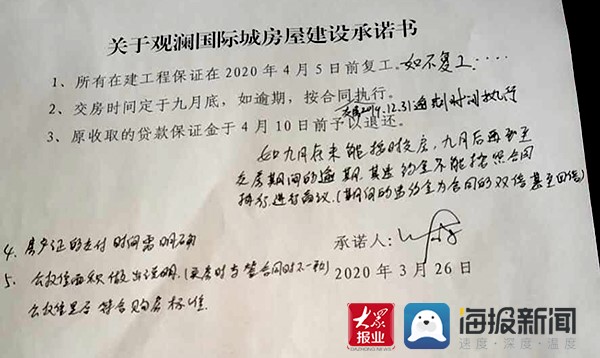 关于观澜国际城房屋建设承诺书
1、所有在建工程保证在2020年4月5日前复工。如不复工:····
2、交房时间定于九月底,如逾期,按合同执行。
2019.12.31 时间执行
3、原收取的贷款保证金于4月10日前予以退还。
如九月底未能按时交房,九月后再至
交房期间的逾期,其违约金不能按照合同
执行,进行商议。(期间的违约金为合同的双倍甚至四倍)
4、房产证的交付时间需明确
5、公摊面积做出说明。(交房时与签合同时不一致)
公摊是否符合购房标准.
承诺人:
2020年3月26日
大众报业
海报新闻
速度·深度·温度